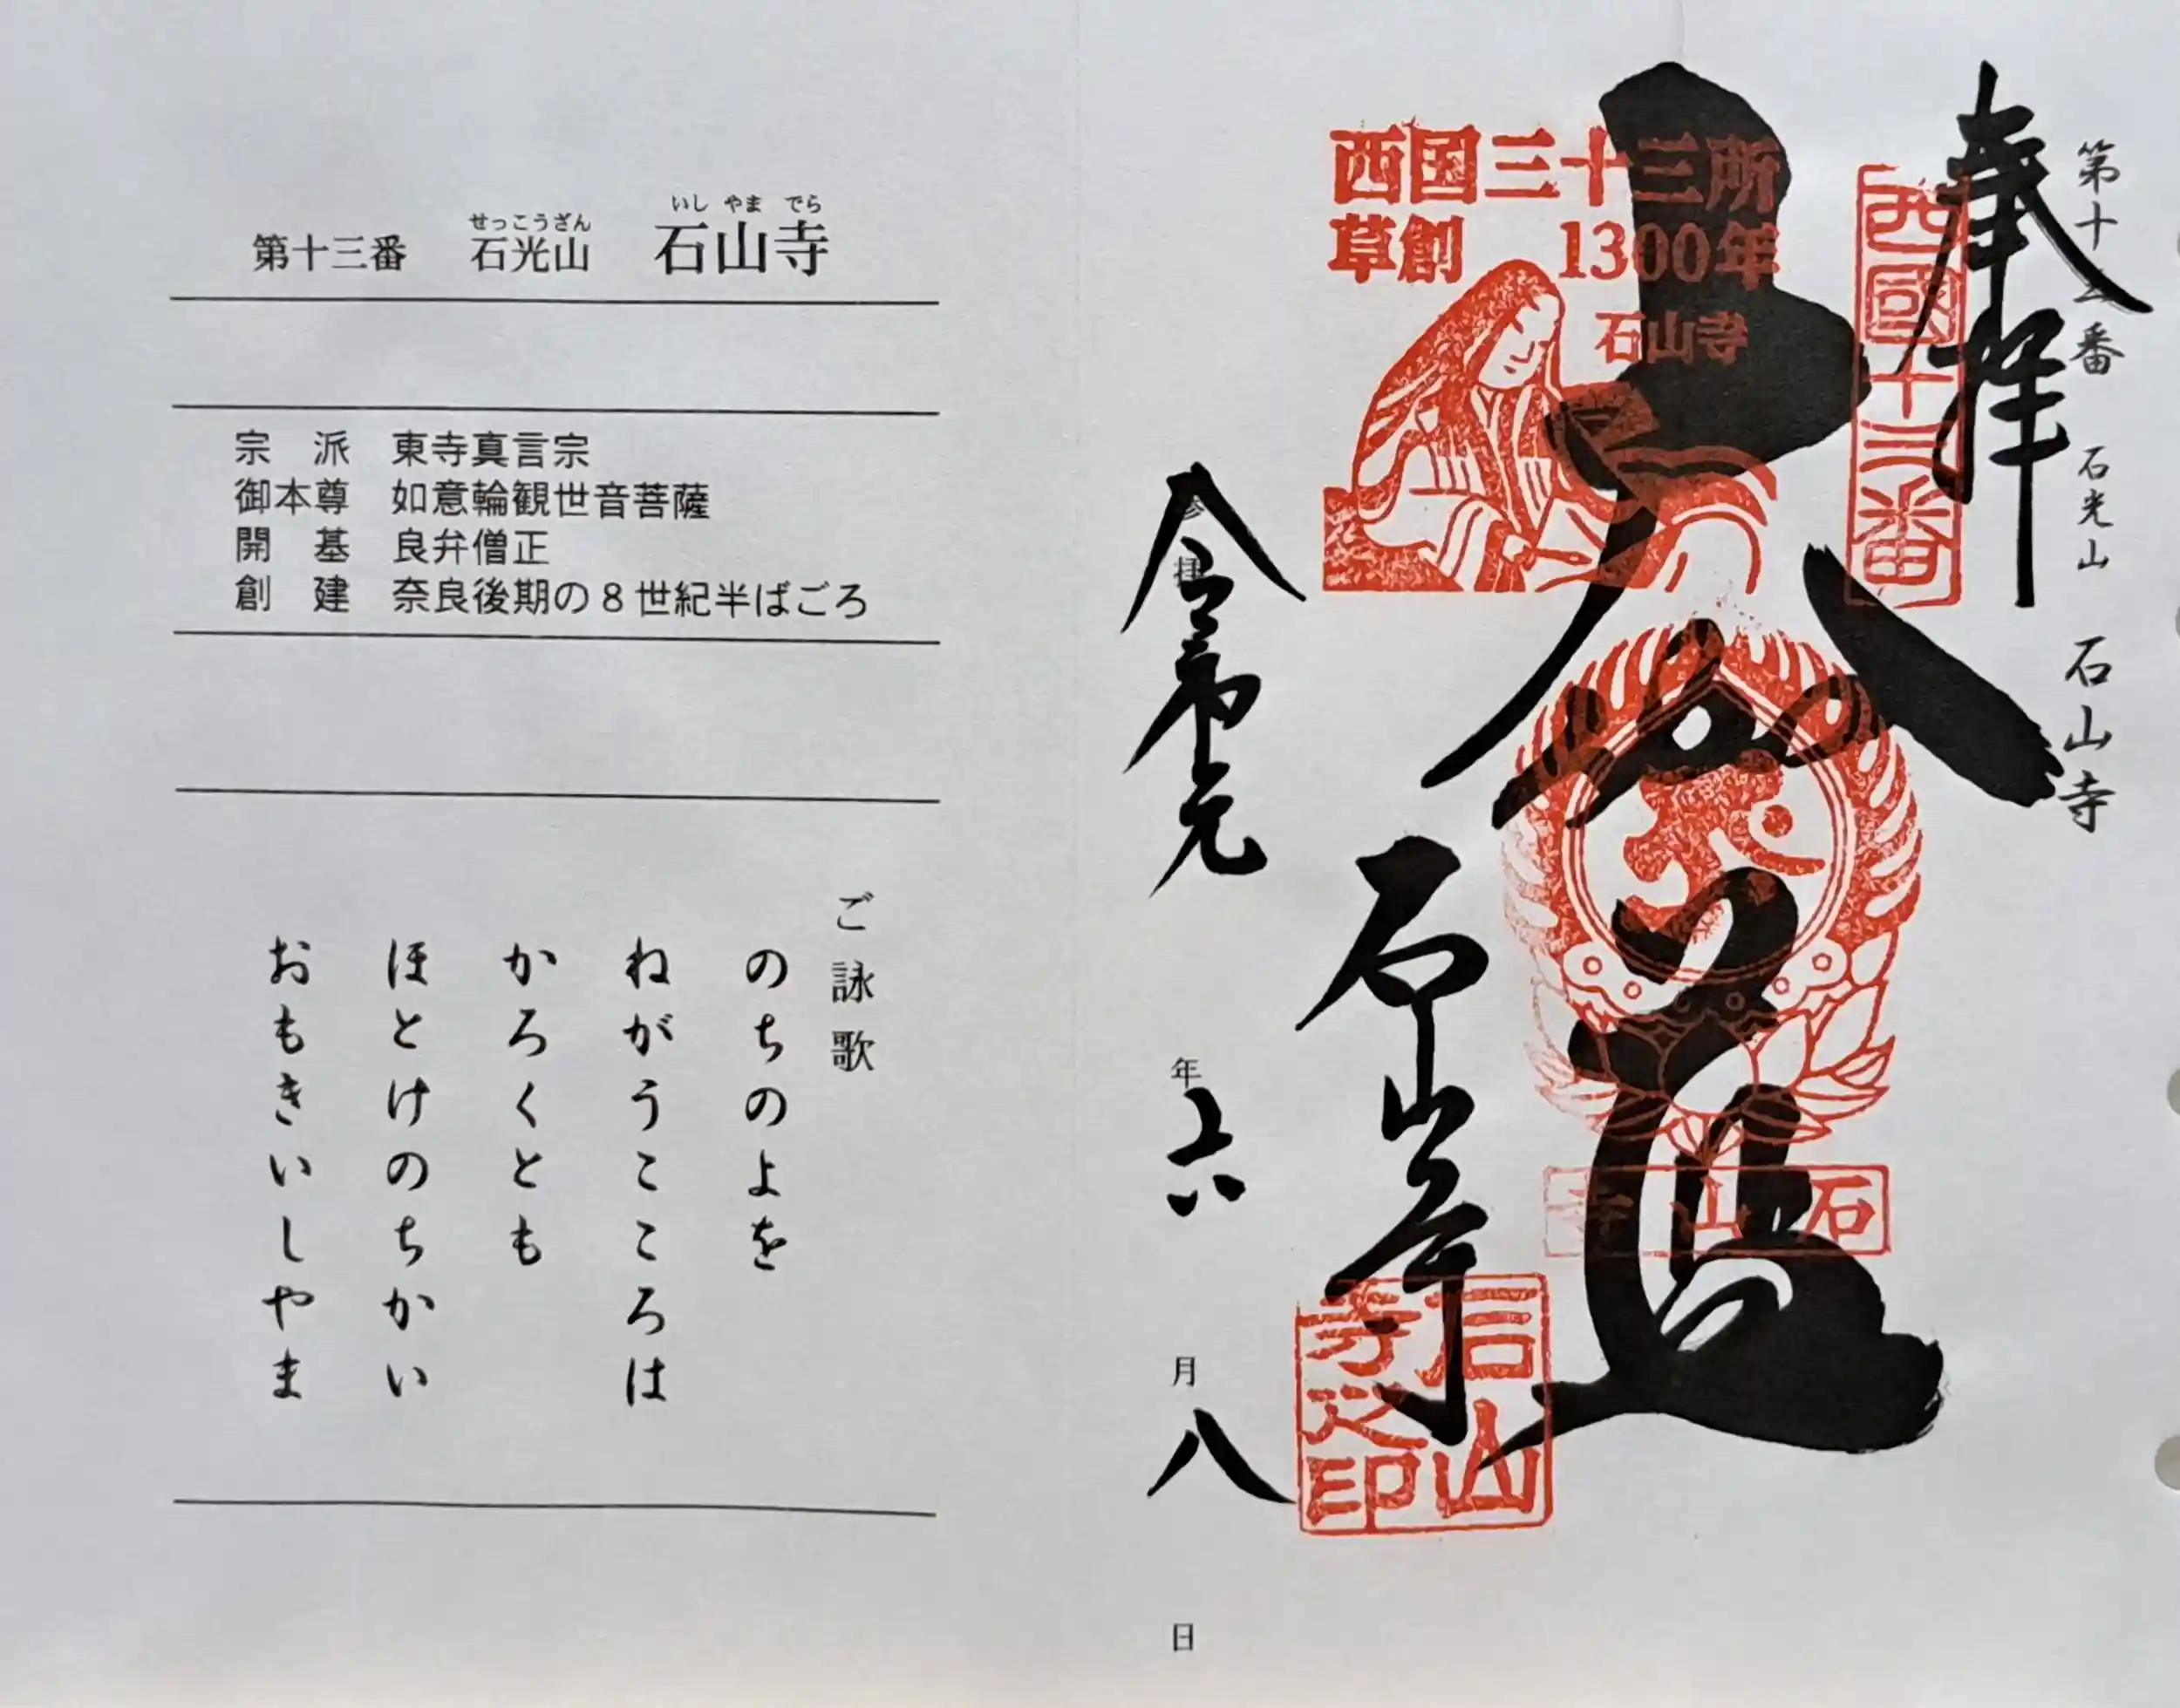 第十三番 石光山 石山寺
奉拝
西國十三番
西国三十三所
草創 1300年
石山寺
大悲殿
石山寺
石山寺
石山寺之印
参拝
令和元年六月八日
せっこうざん いしやまでら
第十三番 石光山 石山寺
宗派 東寺真言宗
御本尊 如意輪観世音菩薩
開基 良弁僧正
創建 奈良後期の8世紀半ばごろ
ご詠歌
のちのよを
ねがうこころは
かろくとも
ほとけのちかい
おもきいしやま